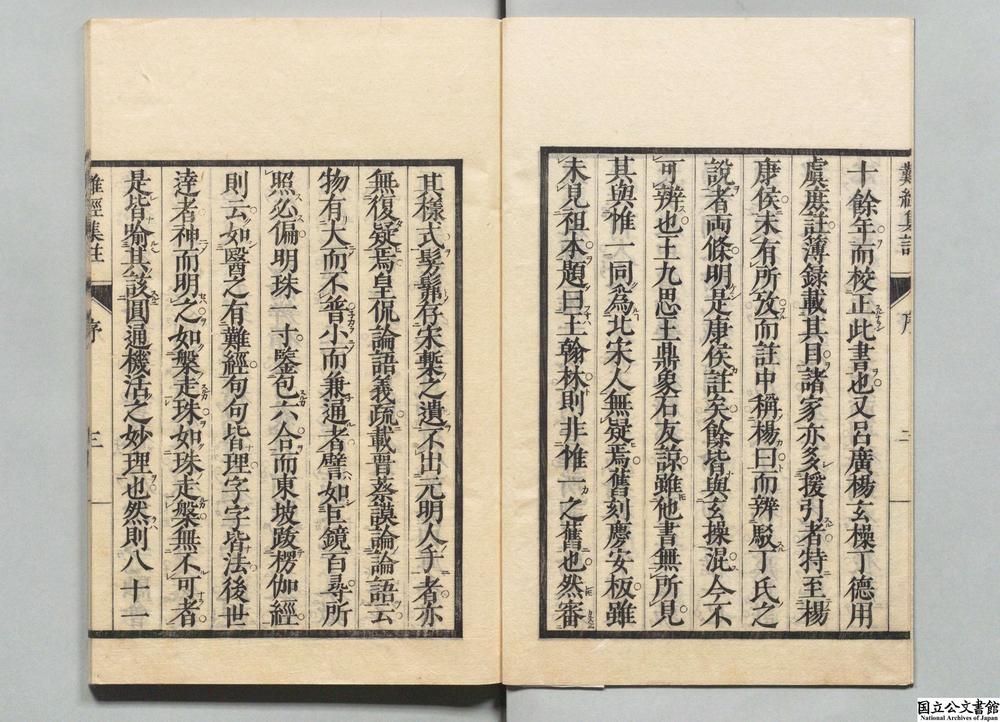 難經集註
序
二
十餘年而校正此書也又呂廣楊玄操丁德用
虞庶註簿錄載其目諸家亦多援引者特至楊
康侯未有所攷而註中稱楊曰而辨駁丁氏之
說者兩條明是康侯註矣餘皆與玄操混今不
可辨也王九思王鼎象石友諒雖他書無所見
其與惟一同爲北宋人無疑焉舊刻慶安板雖
未見祖本題曰王翰林則非惟一之舊也然審
其樣式髣髴存宋槧之遺不出元明人手者亦
無復疑焉皇侃論語義疏載晉蔡謨論論語云
物有大而不普小而兼通者譬如巨鏡百尋所
照必偏明珠一寸鑒包六合而東坡跋楞伽經
則云如醫之有難經句句皆理字字皆法後世
達者神而明之如槃走珠如珠走槃無不可者
是皆喻其該圓通機活之妙理也然則八十一
難經集註
序
三
国立公文書館
National Archives of Japan